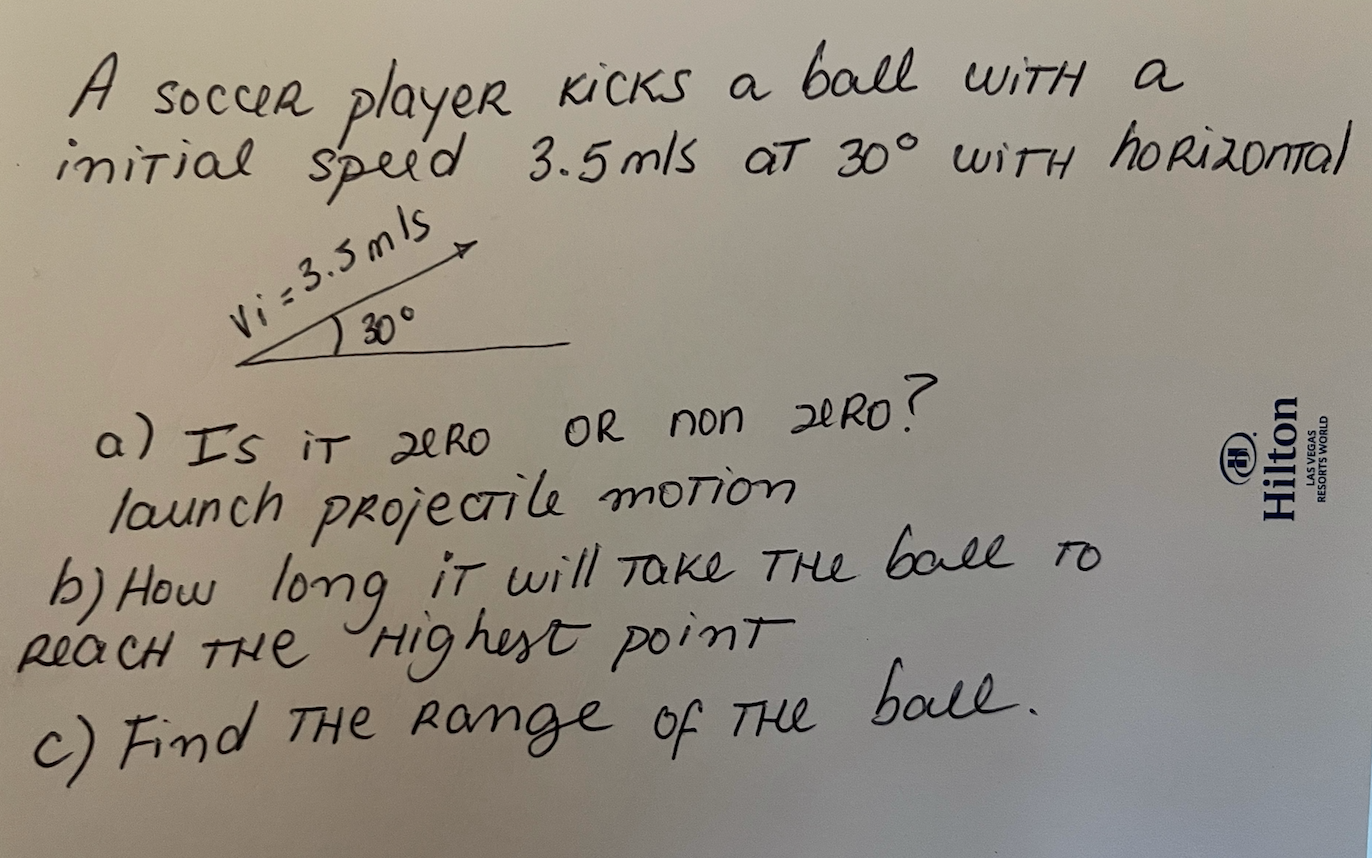 A soccer player kicks a ball with a
initial speed 3.5 m/s at 30° with horizontal
Vi = 3.5 m/s
30°
a) Is it zero or non zero?
launch projectile motion
b) How long it will take the ball to
reach the Highest point
c) Find the Range of the ball.
Hilton
LAS VEGAS
RESORTS WORLD